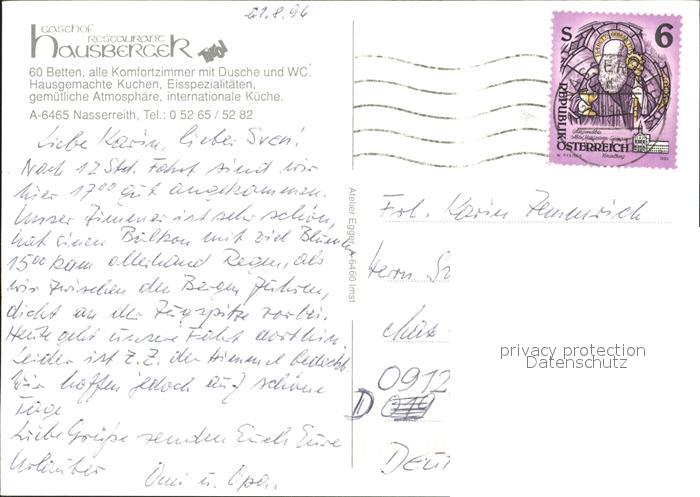 21.8.96
GASTHOF
RESTAURANT
HAUSBERGER
60 Betten, alle Komfortzimmer mit Dusche und WC.
Hausgemachte Kuchen, Eisspezialitäten,
gemütliche Atmosphäre, internationale Küche.
A-6465 Nasserreith, Tel.: 0 52 65 / 52 82
Liebe Karin, lieber Sven!
Nach 12 Std. Fahrt sind wir
hier 17⁰⁰ gut angekommen.
Unser Zimmer ist sehr schön,
hat einen Balkon mit viel Blumen
15⁰⁰ kam allerhand Regen, als
wir zwischen den Bergen fuhren,
dicht an der Zugspitze vorbei.
Heute geht unsere Fahrt dorthin.
Leider ist z.Z. der Himmel bedeckt.
Wir hoffen jedoch auf schöne
Tage
Liebe Grüße senden Euch Eure
Urlauber Omi u. Opa.
Atelier Egger, A-6460 Imst
S 6
REPUBLIK
ÖSTERREICH
Frl. Karin
Herrn
0912
D
privacy protection
Datenschutz